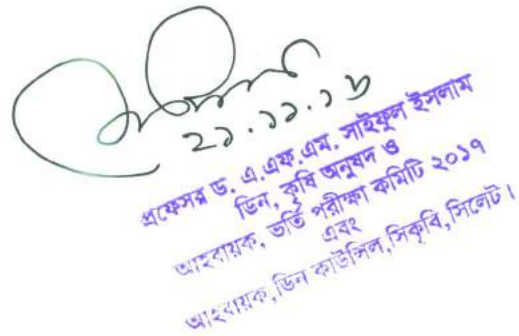 ২১.১১.১৮
প্রফেসর ড. এ.এফ.এম. সাইফুল ইসলাম
ডিন, কৃষি অনুষদ ও
আহবায়ক, ভর্তি পরীক্ষা কমিটি ২০১৭
এবং
আহবায়ক,ডিন কাউন্সিল,সিকৃবি,সিলেট।